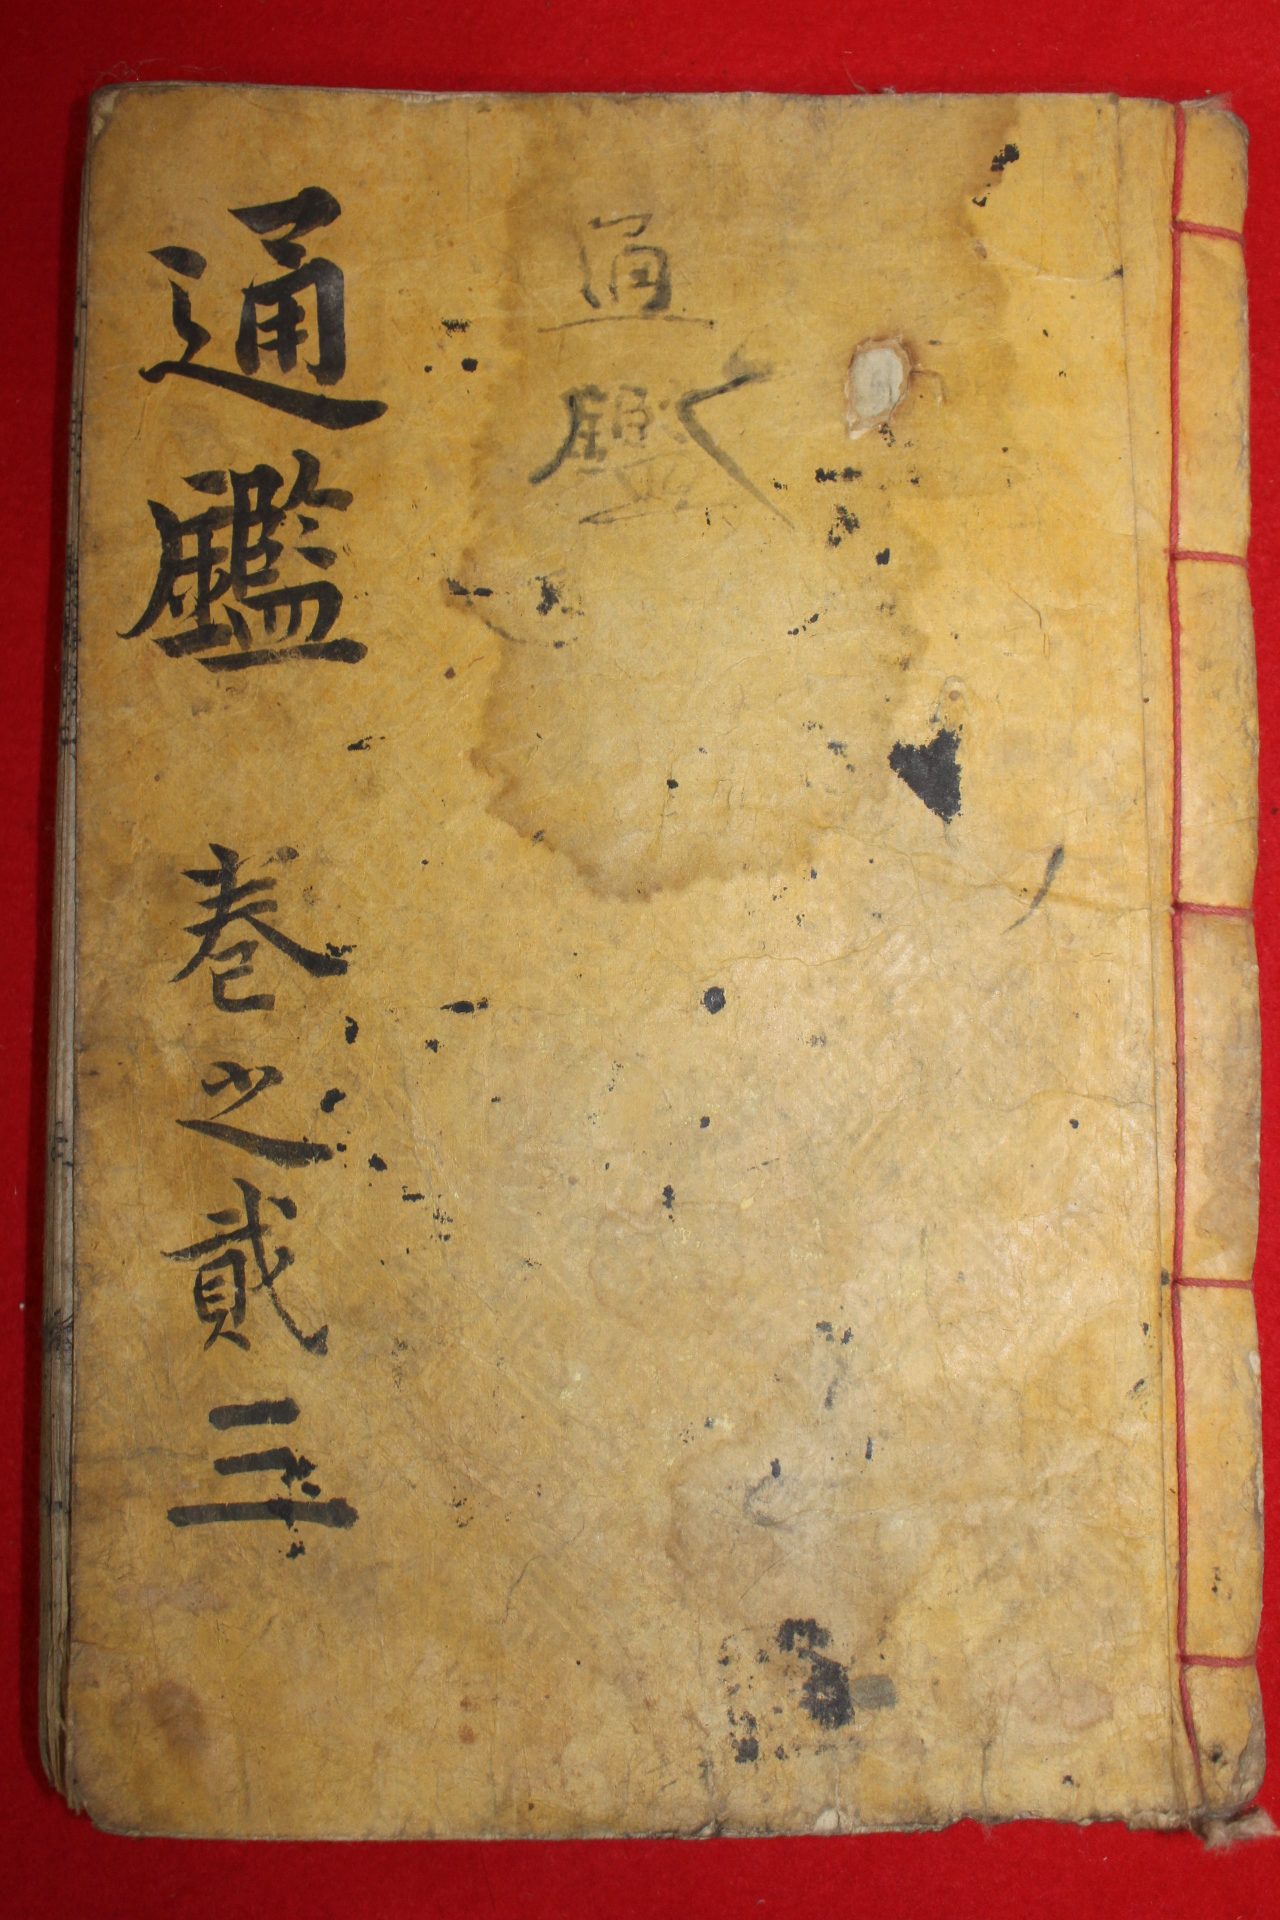 通鑑
通鑑 卷之貳三